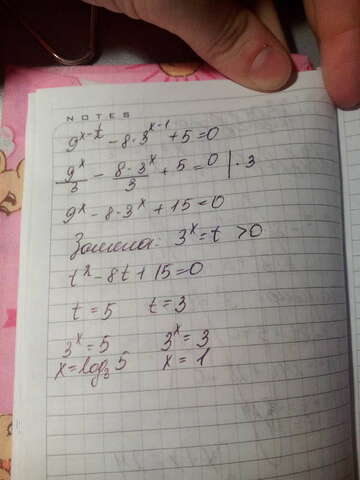 NOTES
9^{x-\frac{1}{2}} - 8·3^{x-1} + 5 = 0
\frac{9^x}{3} - \frac{8·3^x}{3} + 5 = 0 | · 3
9^x - 8·3^x + 15 = 0
Замена: 3^x = t > 0
t^x - 8t + 15 = 0
t = 5 t = 3
3^x = 5 3^x = 3
x = log_3 5 x = 1